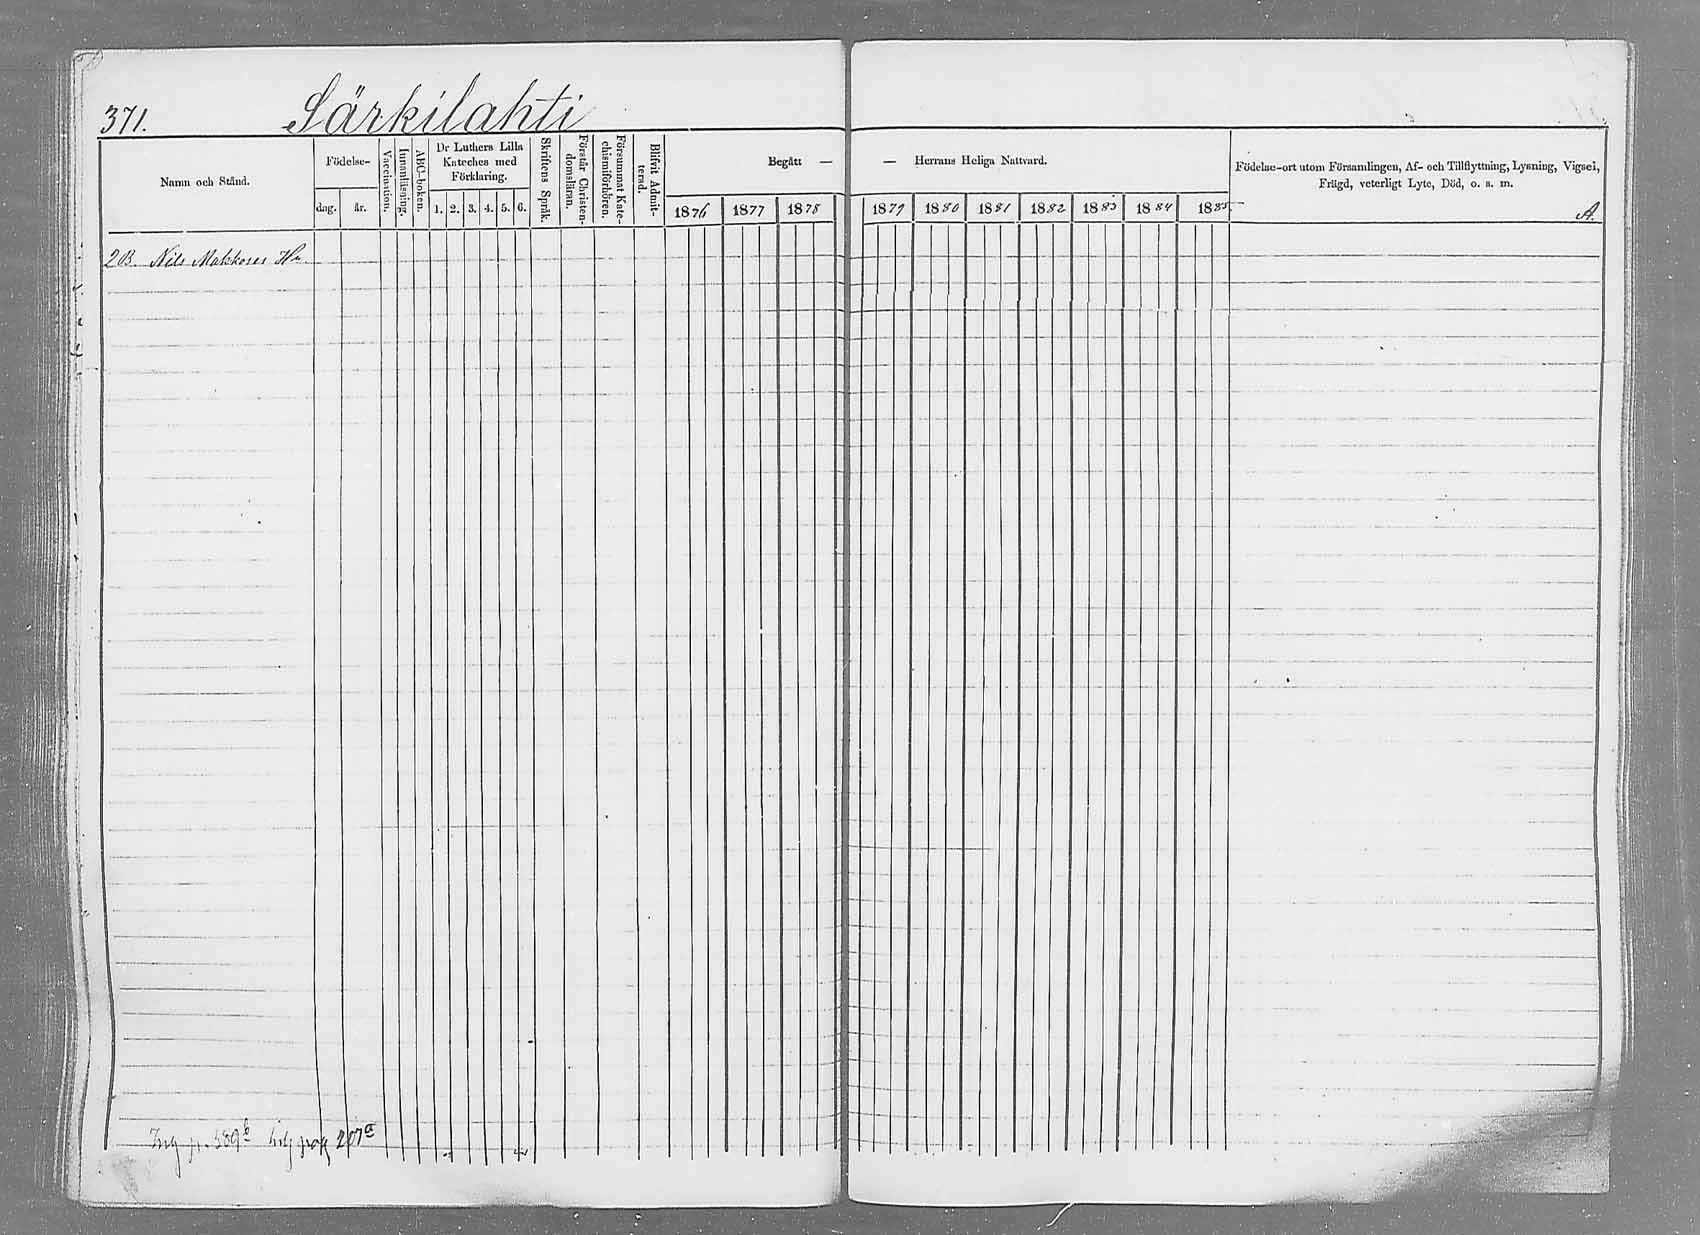 371. Särkilahti
Namn och Stånd.
Födelse-
dag. år.
Vaccination.
Innanläsning.
ABC-boken.
Dr Luthers Lilla
Kateches med
Förklaring.
1. 2. 3. 4. 5. 6.
Skriftens Språk.
Förstår Christen-
domsläran.
Försummat Kate-
chismiförhören.
Blifvit Admit-
terad.
Begått — — Herrans Heliga Nattvard.
1876 1877 1878 1879 1880 1881 1882 1883 1884 1885
Födelse-ort utom Församlingen, Af- och Tillflyttning, Lysning, Vigsel,
Frägd, veterligt Lyte, Död, o. s. m.
A.
2 B. Nils Makkoses Hn.
pag 207a